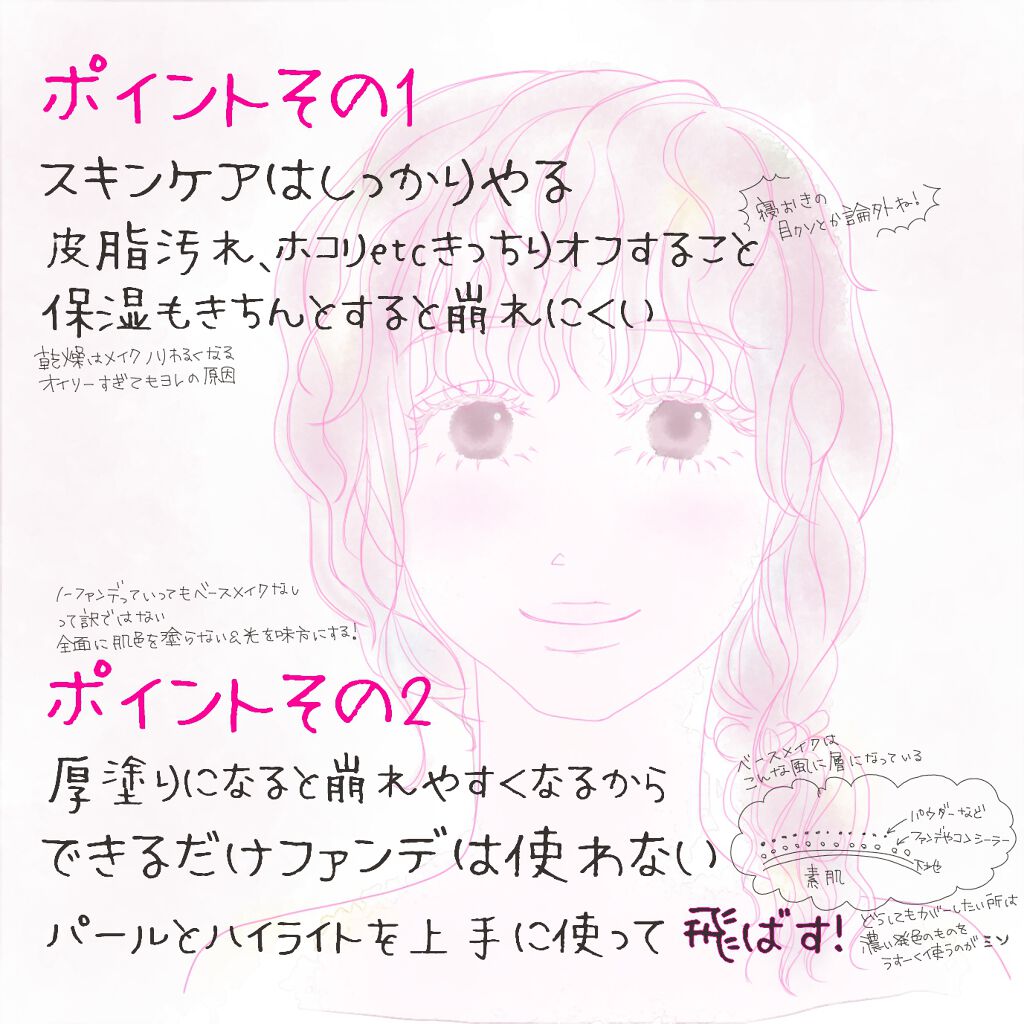 ポイントその1
スキンケアはしっかりやる
寝おきの
目クソとか論外ね!
皮脂汚れ、ホコリetcきっちりオフすること
保湿もきちんとすると崩れにくい
乾燥はメイクノリわるくなる
オイリーすぎてもヨレの原因
ノーファンデっていってもベースメイクなし
って訳ではない
全面に肌色を塗らない&光を味方にする!
ポイントその2
厚塗りになると崩れやすくなるから
できるだけファンデは使わない
パールとハイライトを上手に使って飛ばす!
ベースメイクは
こんな風に層になっている
パウダーなど
ファンデやコンシーラー
下地
素肌
どうしてもカバーしたい所は
濃い発色のものを
うすーく使うのがミソ